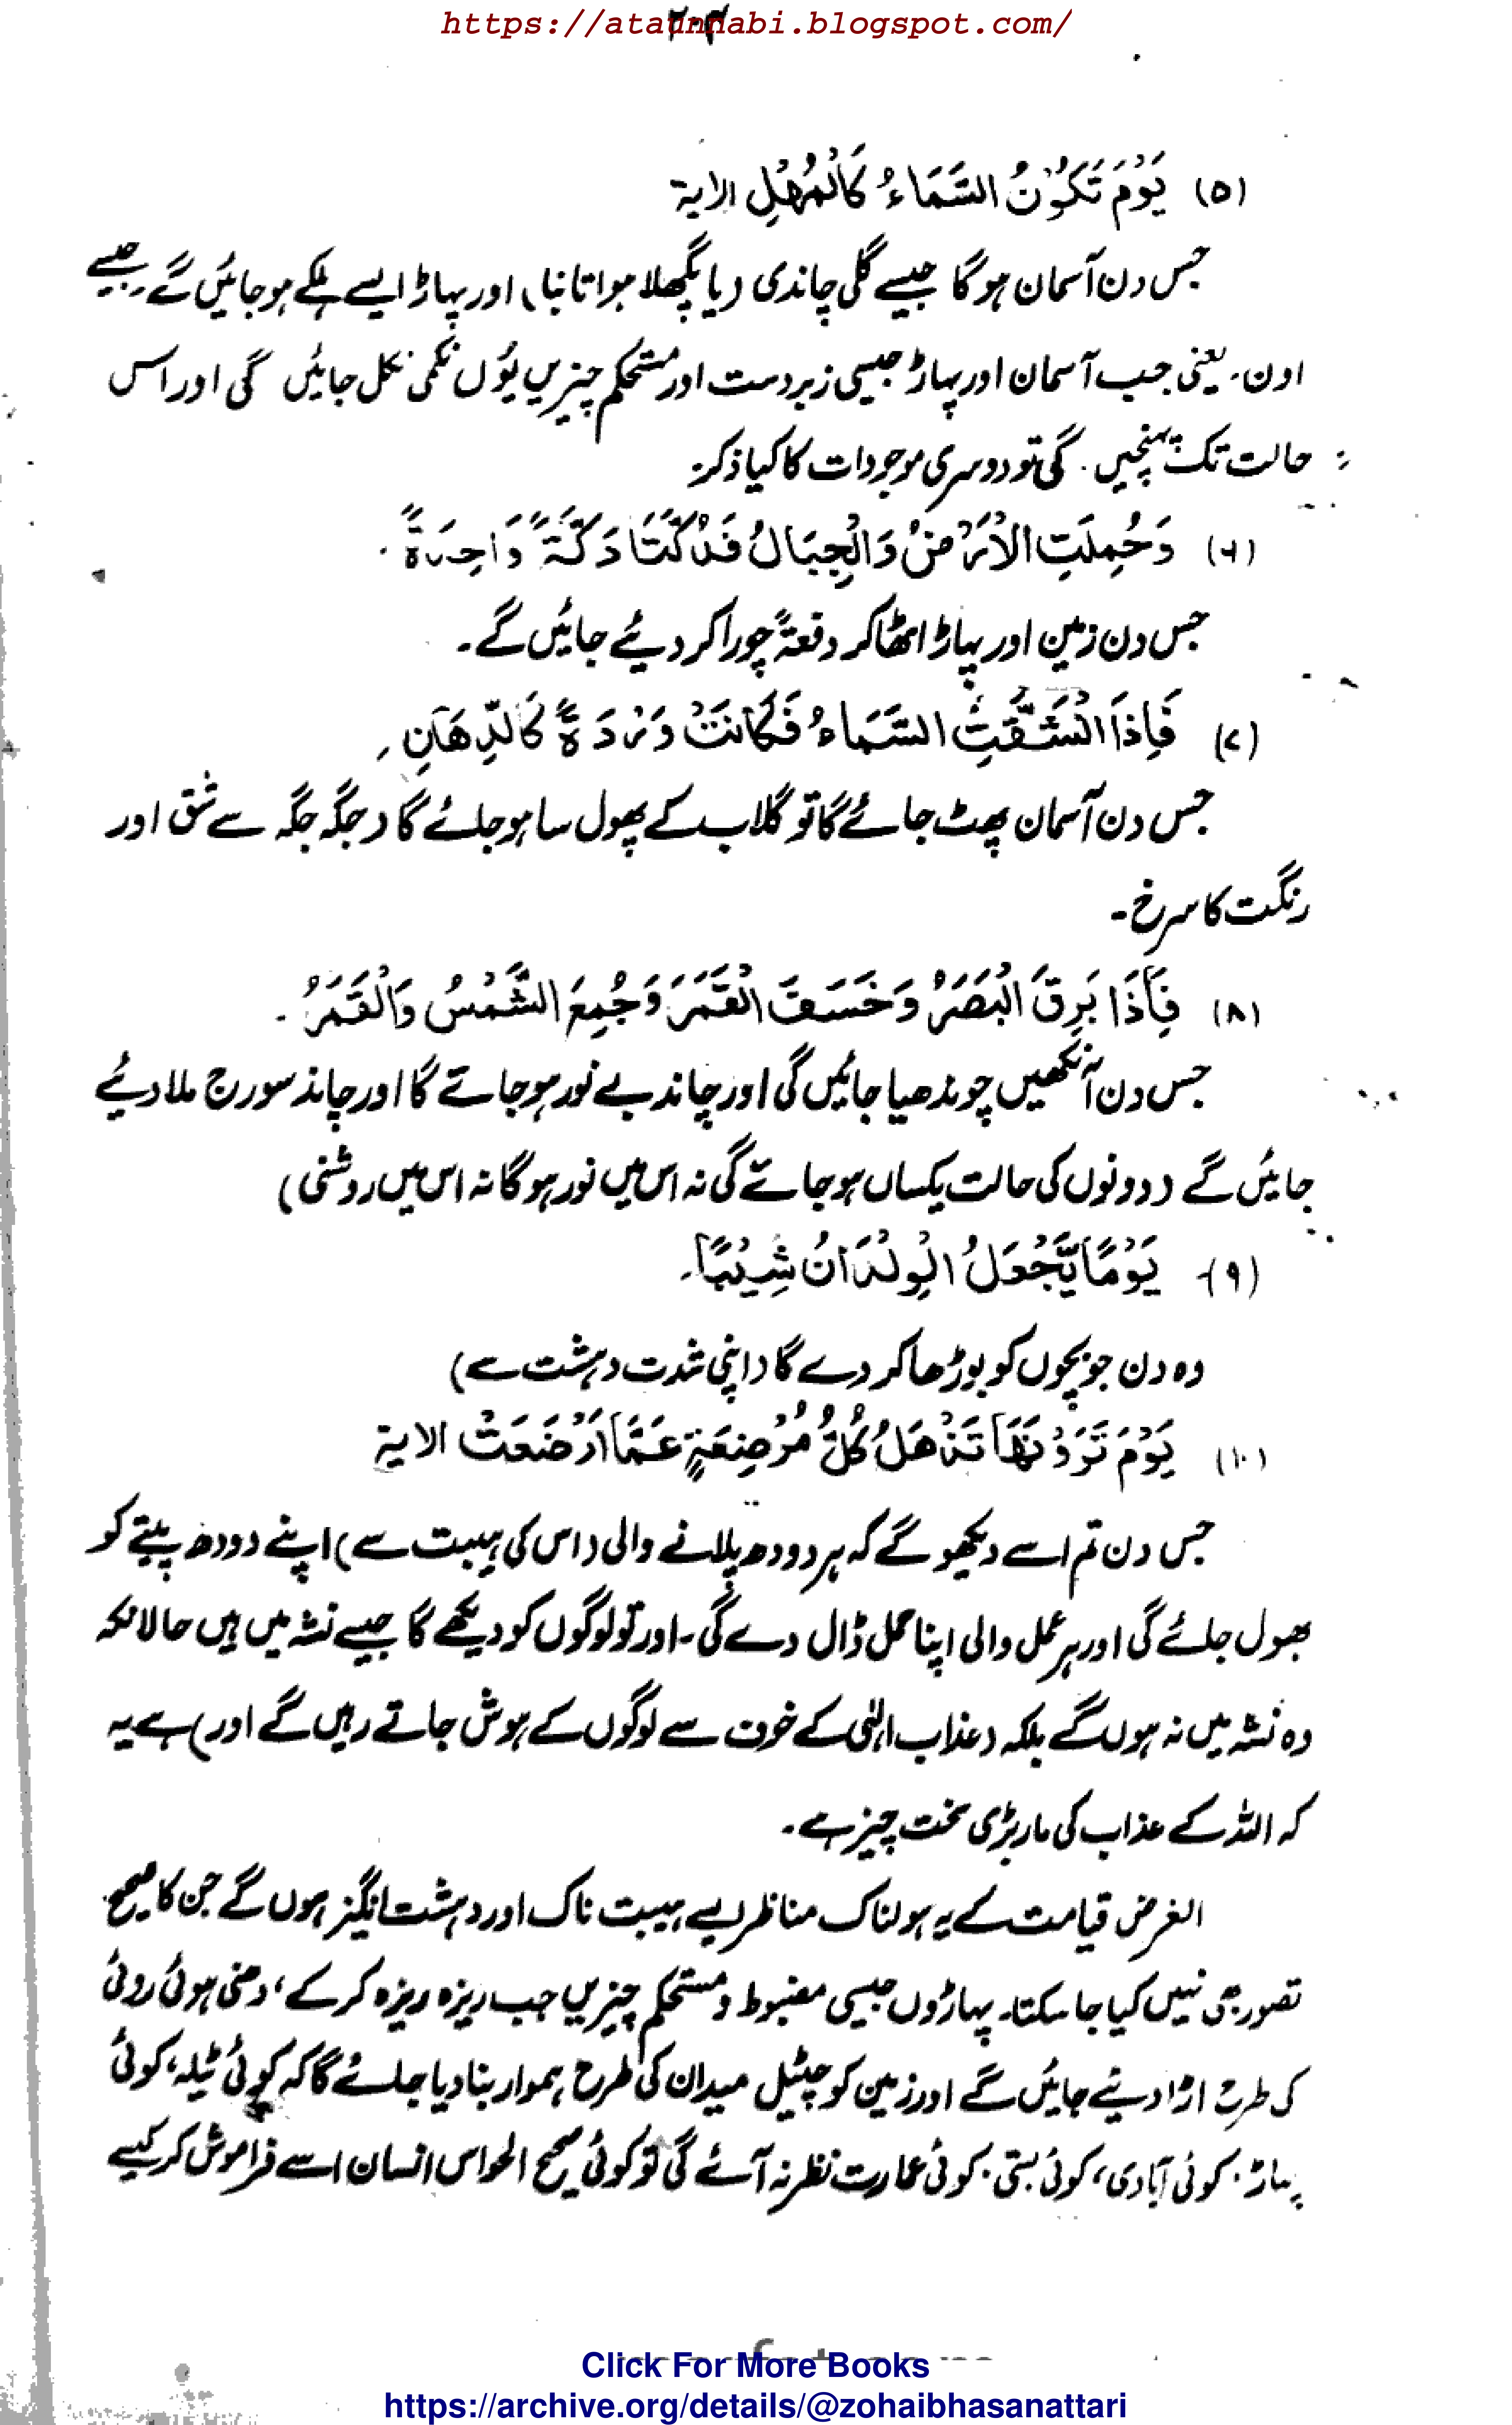 https://ataunnabi.blogspot.com/
۲۰۴
(۵) يَوْمَ تَكُوْنُ السَّمَاءُ كَالْمُهْلِ الاٰیۃ
جس دن آسمان ہوگا جیسے گلی چاندی (یا پگھلا ہوا تانبا) اور پہاڑ ایسے ہلکے ہو جائیں گے جیسے
اون۔ یعنی جب آسمان اور پہاڑ جیسی زبردست اور مستحکم چیزیں یوں نکمی نکل جائیں گی اور اس
حالت تک پہنچیں گی تو دوسری موجودات کا کیا ذکر۔
(۶) وَحُمِلَتِ الْاَرْضُ وَالْجِبَالُ فَدُكَّتَا دَكَّةً وَّاحِدَةً۔
جس دن زمین اور پہاڑ اٹھا کر دفعۃً چورا کر دیئے جائیں گے۔
(۷) فَاِذَا انْشَقَّتِ السَّمَاءُ فَكَانَتْ وَرْدَةً كَالدِّهَانِ۔
جس دن آسمان پھٹ جائے گا تو گلاب کے پھول سا ہو جائے گا (جگہ جگہ سے شق اور
رنگت کا سرخ۔
(۸) فَاِذَا بَرِقَ الْبَصَرُ وَخَسَفَ الْقَمَرُ وَجُمِعَ الشَّمْسُ وَالْقَمَرُ۔
جس دن آنکھیں چوندھیا جائیں گی اور چاند بے نور ہو جائے گا اور چاند سورج ملا دیئے
جائیں گے (دونوں کی حالت یکساں ہو جائے گی نہ اس میں نور ہوگا نہ اس میں روشنی)
(۹)۔ يَوْمًا يَّجْعَلُ الْوِلْدَانَ شِيْبًا۔
وہ دن جو بچوں کو بوڑھا کر دے گا (اپنی شدت دہشت سے)
(۱۰) يَوْمَ تَرَوْنَهَا تَذْهَلُ كُلُّ مُرْضِعَةٍ عَمَّا اَرْضَعَتْ الایۃ
جس دن تم اسے دیکھو گے کہ ہر دودھ پلانے والی (اس کی ہیبت سے) اپنے دودھ پیتے کو
بھول جائے گی اور ہر حمل والی اپنا حمل ڈال دے گی۔ اور تو لوگوں کو دیکھے گا جیسے نشہ میں ہیں حالانکہ
وہ نشہ میں نہ ہوں گے بلکہ (عذاب الٰہی کے خوف سے لوگوں کے ہوش جاتے رہیں گے اور) ہے یہ
کہ اللہ کے عذاب کی مار بڑی سخت چیز ہے۔
الغرض قیامت کے یہ ہولناک مناظر ایسے ہیبت ناک اور دہشت انگیز ہوں گے جن کا صحیح
تصور بھی نہیں کیا جا سکتا۔ پہاڑوں جیسی مضبوط و مستحکم چیزیں جب ریزہ ریزہ کر کے، دھنی ہوئی روئی
کی طرح اڑا دیئے جائیں گے اور زمین کو چٹیل میدان کی طرح ہموار بنا دیا جائے گا کہ کوئی ٹیلہ، کوئی
پہاڑ، کوئی آبادی، کوئی بستی، کوئی عمارت نظر نہ آئے گی تو کوئی صحیح الحواس انسان اسے فراموش کر کیسے
Click For More Books
https://archive.org/details/@zohaibhasanattari